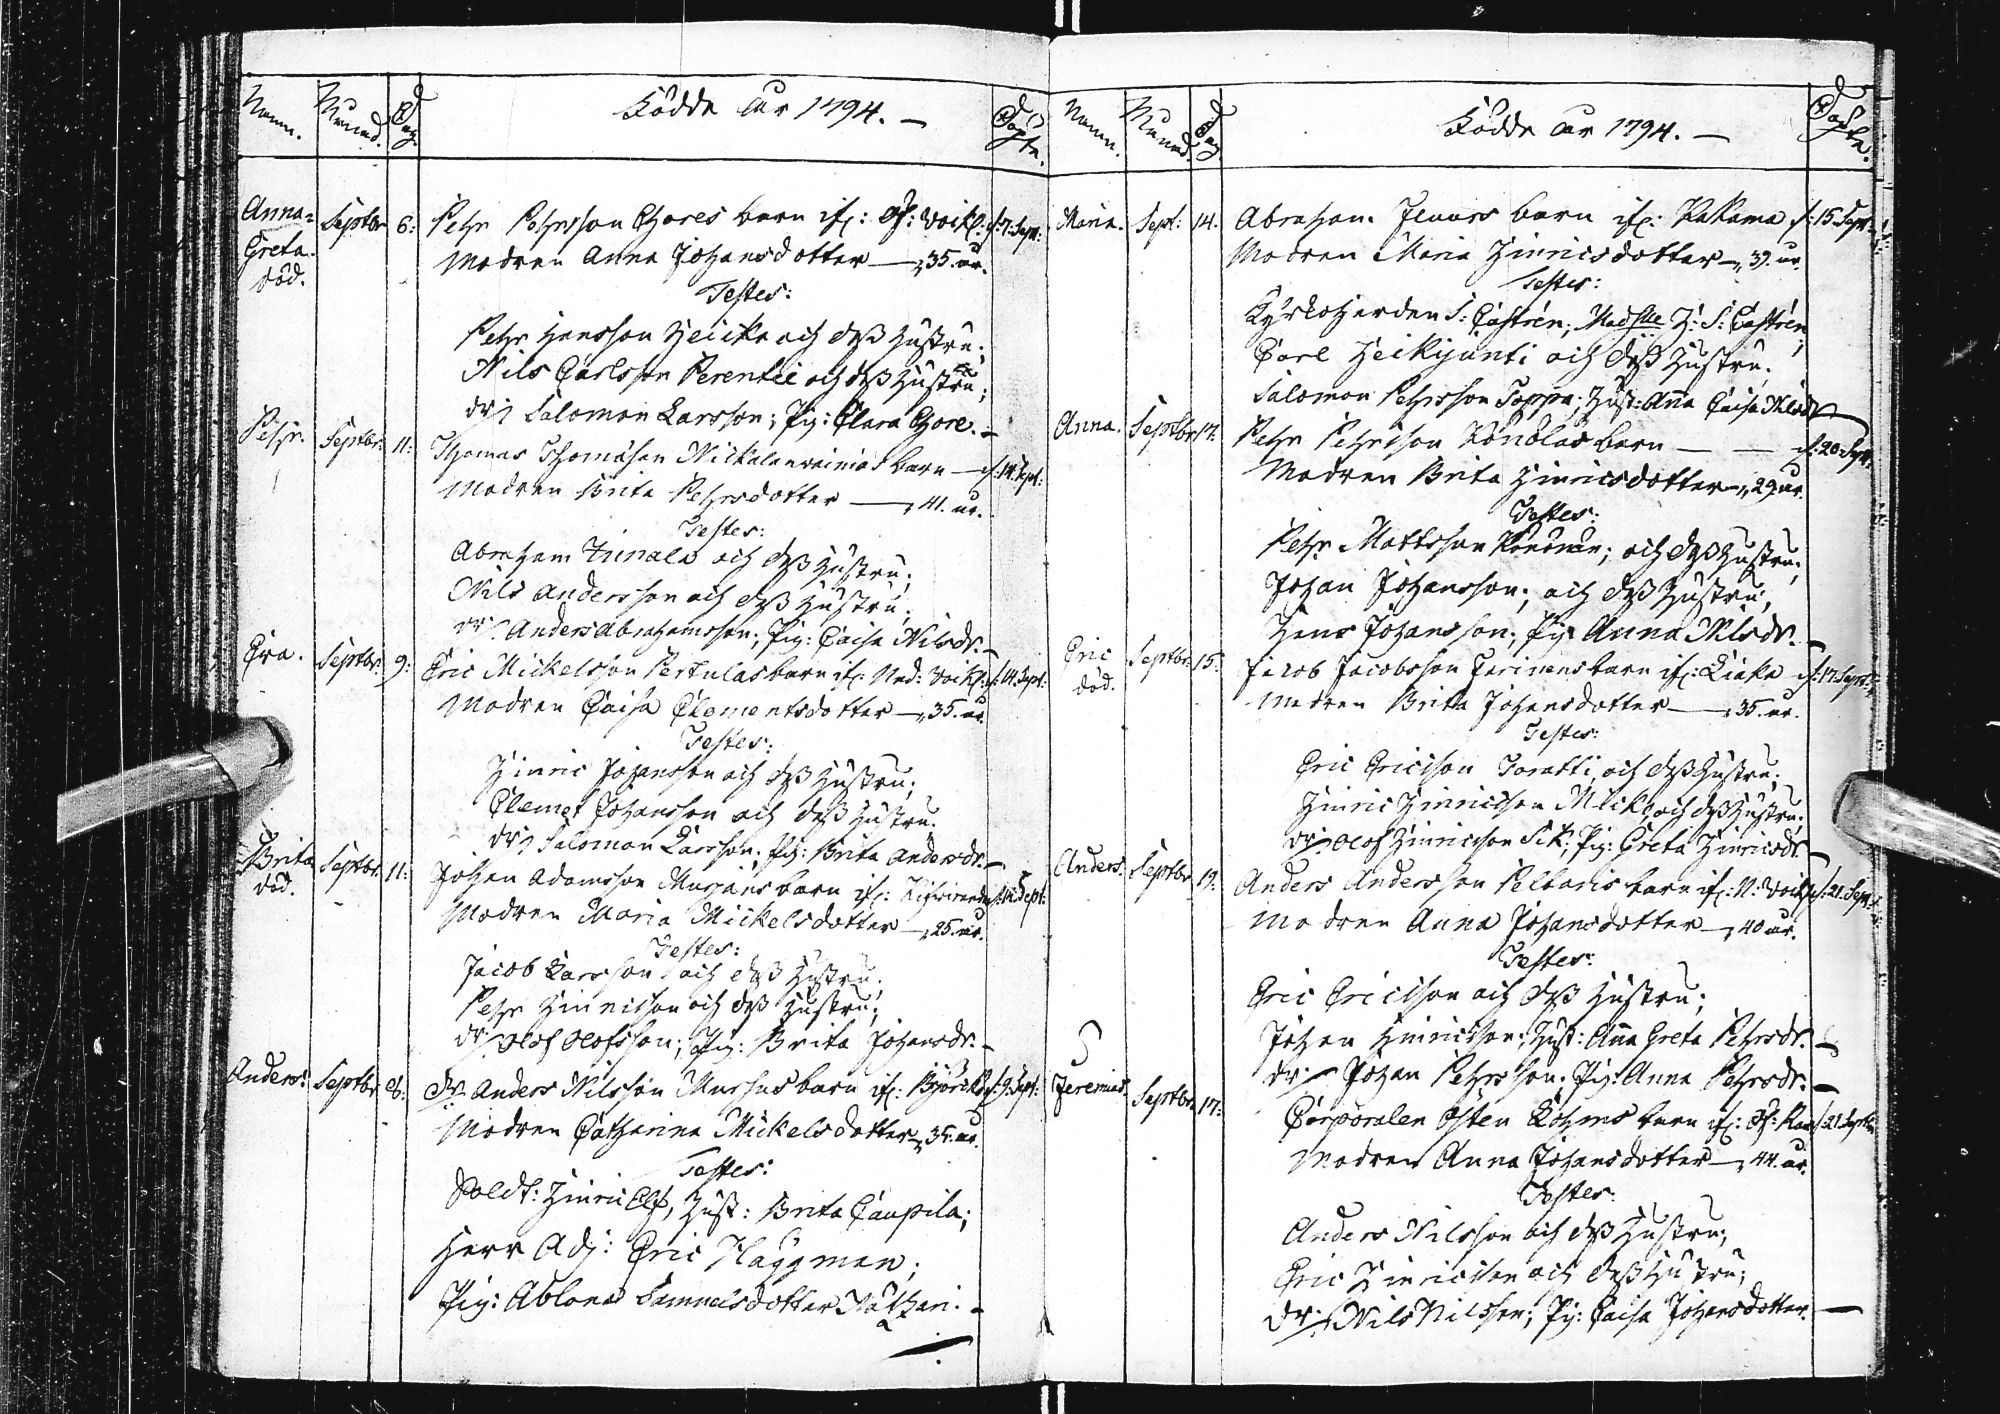 Namn. Månad. Dag. Födde år 1794. — Döpte.
Anna= Septbr 6: Pehr Pehrsson Chores barn ifr: Of: Voik: d: 7. Sept:
Greta. Modren Anna Johansdotter — 35. år.
död.
Testes:
Pehr Hansson Heicka och dess hustru;
Nils Carlsson Perentie och dess hustru;
dr: Salomon Larsson; Pig: Clara Chore. —
Pehr. Septbr. 11: Thomas Thomasson Nickalanvainios barn — d: 14. Sept:
Modren Brita Pehrsdotter — 41. år.
Testes:
Abraham Junala och dess hustru;
Nils Andersson och dess hustru;
dr: Anders Abrahamsson; Pig: Caisa Nilsdr. —
Eva. Septbr. 9: Eric Mickelsson Pertulas barn ifr: Ned: Voik: d: 14. Sept:
Modren Caisa Clementsdotter — 35. år.
Testes:
Hinric Johansson och dess hustru;
Clemet Johansson och dess hustru.
dr: Salomon Larsson; Pig: Brita Andersdr. —
Brita Septbr. 11: Johan Adamsson Marjains barn ifr: d: 14. Sept:
död. Modren Maria Mickelsdotter — 25. år.
Testes:
Jacob Larsson och dess hustru;
Pehr Hinricsson och dess hustru;
dr: Olof Olofsson; Pig: Brita Johansdr. —
Anders. Septbr. 6: Dr: Anders Nilsson Mursus barn ifr: Björck: d: 9. Sept:
Modren Catharina Mickelsdotter — 35. år.
Testes:
Soldt: Hinric Elf, Hust: Brita Caupila;
Herr Adj: Eric Häggman;
Pig: Ablona Samuelsdotter —
Namn. Månad. Dag. Födde år 1794. — Döpte.
Maria. Sept: 14. Abraham Jivars barn ifr: Kakama d: 15. Sept:
Modren Maria Hinricsdotter — 39. år.
Testes:
Kyrkoherden S: Castrén; Madslle H: S: Castrén;
Carl Heikijunti och dess hustru.
Salomon Pehrsson Toppa; Hust: Anna Caisa Nilsdr
Anna. Septbr. 17. Pehr Pehrsson Könölas barn — — d: 20. Sept.
Modren Brita Hinricsdotter — 29. år.
Testes:
Pehr Mattsson Könönen; och dess hustru;
Johan Johansson; och dess hustru;
Hans Johansson; Pig: Anna Nilsdr. —
Eric Septbr. 15. Jacob Jacobsson Farinens barn ifr: Liaka d: 17. Sept:
död. Modren Brita Johansdotter — 35. år.
Testes:
Eric Ericsson Toratti, och dess hustru;
Hinric Hinricsson Mickl och dess hustru;
dr: Olof Hinricsson Sik; Pig: Greta Hinricsdr. —
Anders. Septbr. 19: Anders Andersson Pelbaris barn ifr: N: Voik: d: 21. Sept:
Modren Anna Johansdotter — 40 år.
Testes:
Eric Ericsson och dess hustru;
Johan Hinricsson; Hust: Anna Greta Pehrsdr. —
dr: Johan Pehrsson. Pig: Anna Pehrsdr. —
Jeremias. Septbr. 17: Corporalen Östen Böhms barn ifr: Of: d: 21. Septbr
Modren Anna Johansdotter — 44. år.
Testes:
Anders Nilsson och dess hustru;
Eric Hinricsson och dess hustru;
dr: Nils Nilsson; Pig: Caisa Johansdotter. —